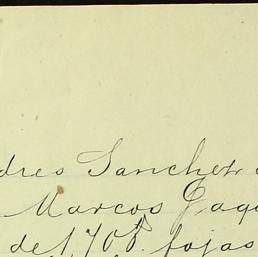 dres Sanchez
Marcos Jaq
de 1,708. fojas